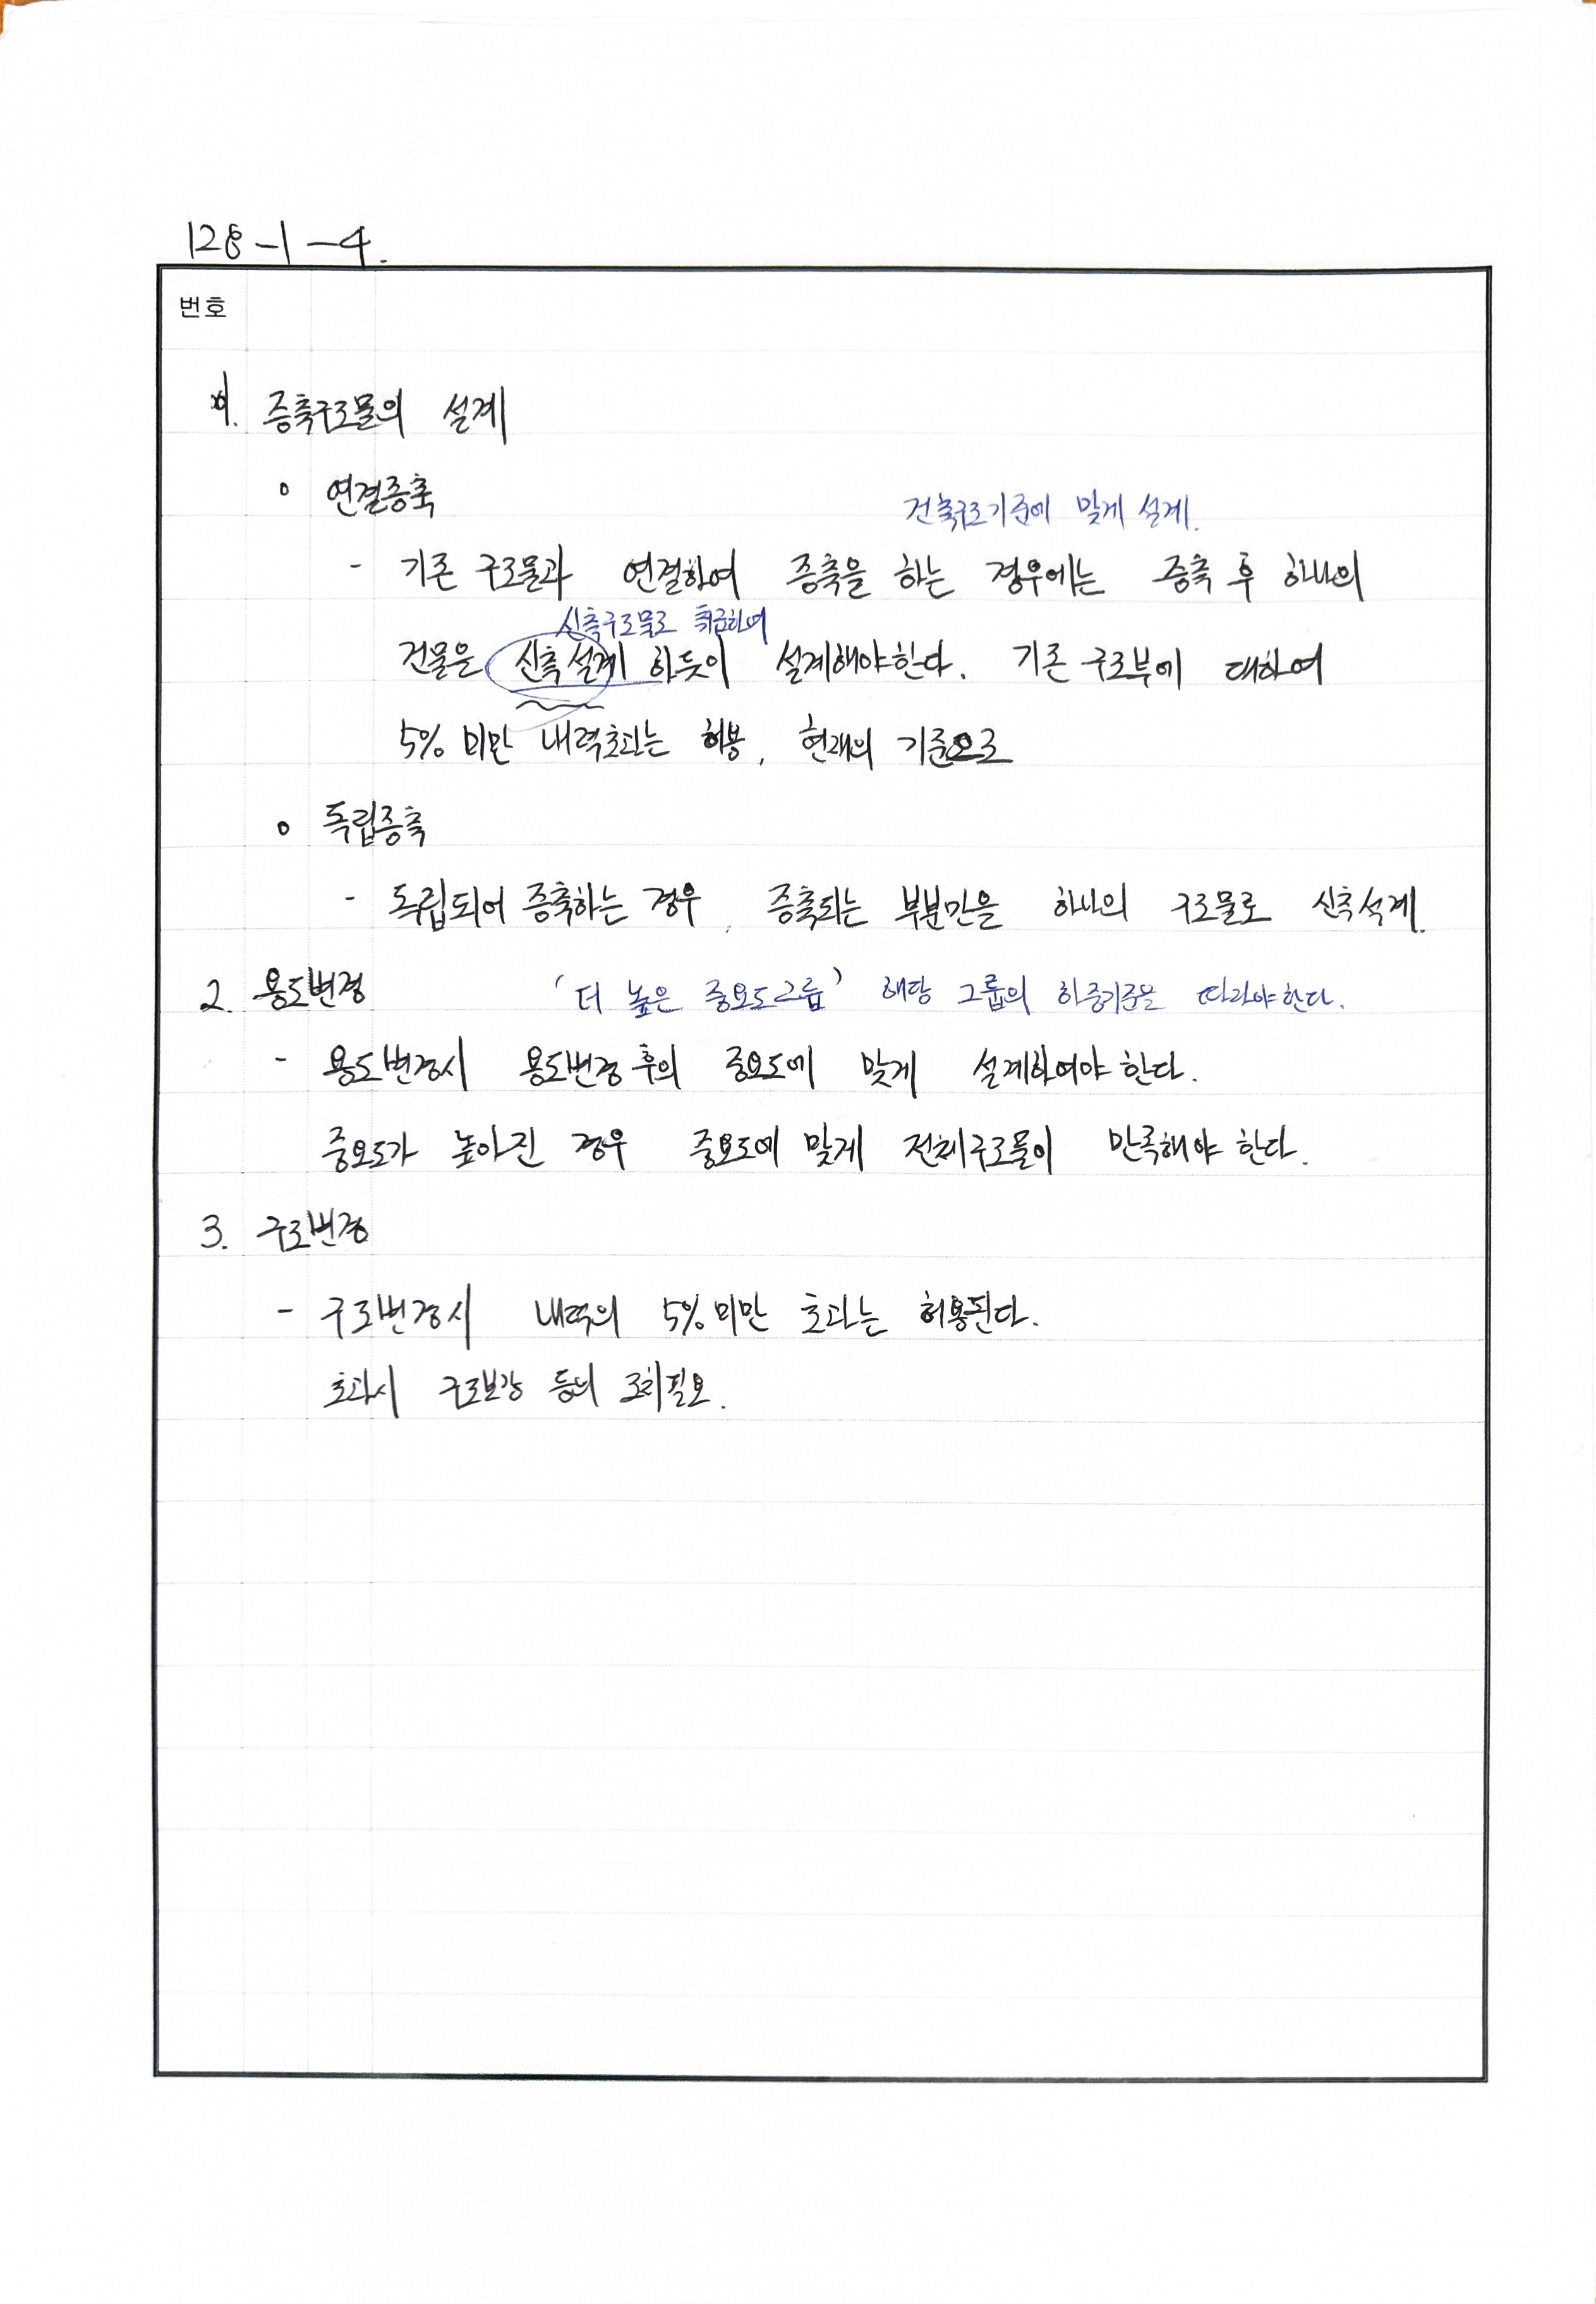 128-1-4.
번호
1. 증축구조물의 설계
o 연결증축
건축구조기준에 맞게 설계.
- 기존 구조물과 연결하여 증축을 하는 경우에는 증축 후 하나의
신축구조물로 취급하여
건물은 신축설계 하듯이 설계해야한다. 기존 구조부에 대하여
5% 미만 내력초과는 허용, 현재의 기준으로
o 독립증축
- 독립되어 증축하는 경우, 증축되는 부분만을 하나의 구조물로 신축설계.
2. 용도변경 '더 높은 중요도그룹' 해당 그룹의 하중기준을 따라야한다.
- 용도변경시 용도변경 후의 중요도에 맞게 설계하여야 한다.
중요도가 높아진 경우 중요도에 맞게 전체구조물이 만족해야 한다.
3. 구조변경
- 구조변경시 내력의 5% 미만 초과는 허용된다.
초과시 구조보강 등의 조치필요.